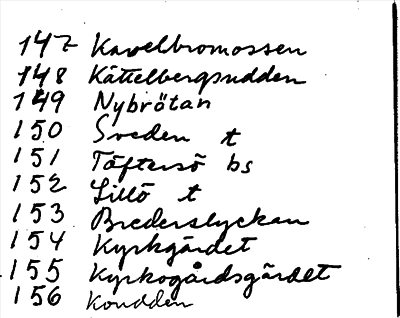 147 Kavelbromossen
148 Kättelbergsudden
149 Nybrötan
150 Sveden t
151 Töftersö bs
152 Lillö t
153 Brederslyckan
154 Kyrkgärdet
155 Kyrkogårdsgärdet
156 Koudden